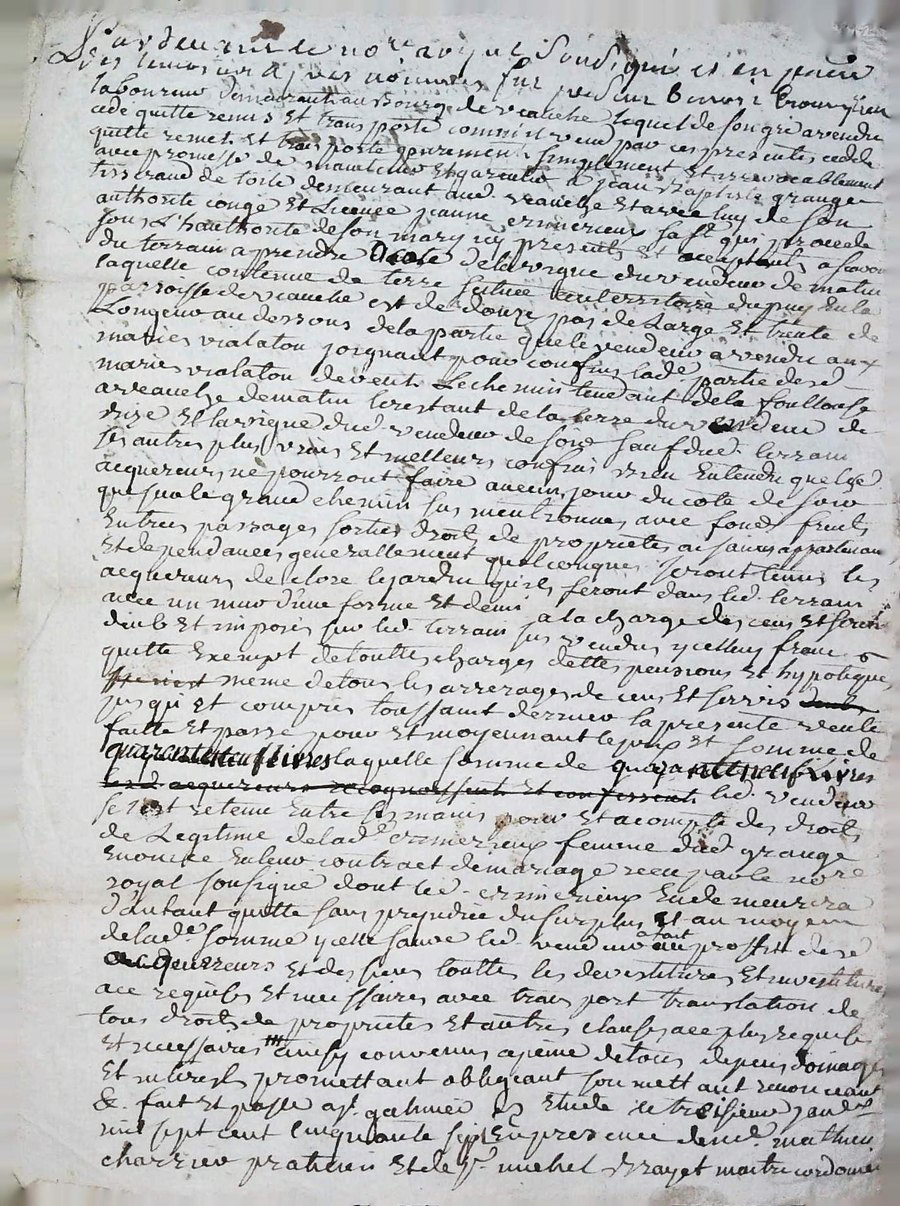 Pardevant le no.re royal soussigné et en presen
des temoins apres nommés fut present benoit
laboureur demeurant au Bourg de veauche lequel de son gré a vendu
cedé quitté remis et transporté comme il vend par ces presentes cede
quitte remet et transporte purement simplement et irrevocablement
avec promesse de maintenir et garentir a jean Baptiste grange
tisserand de toile demeurant aud. veauche et avec luy de son
authorité congé et Licence jeanne crimerieux sa fe qui procede
sous L'hauthorité de son mary icy presents et acceptants a scavoir
du terrain a prendre de la vigne du vendeur de matin
laquelle contenue de terre située en territoire du puy en la
parroisse de veauche est de douze pas de Large et trente de
Longeur au dessous de la partie que le vendeur a vendu aux
maries vialaton joignant pour confins lade partie desd
maries vialaton de vent Le chemin tendant de la foullouse
a veauche de matin le restant de la terre du vendeur de
bize et la vigne dud vendeur de soir sauf dud. terrain
ses autres plus vrais et meilleurs confins bien entendu que lesd
acquereurs ne pourront faire aucun jour du coté de soir
que sur le grand chemin sus mentionné avec fond fruits
Entrées passages sorties droits de proprietés aisances appartenan
et dependances generallement quelconques seront tenus les
acquereurs de clore le jardin qu'ils feront dans led. terrain
avec un mur d'une forme et demi a la charge des cens et servis
deub et imposés sur led. terrain sus vendu ycelluy franc
quitte exempt de touttes charges dettes pensions et hypoteques
meme de tous les arrerages de cens et servis
jusqu'et compris toussaint dernier la presente vente
faitte et passé pour et moyennant le prix et somme de
quarente neuf livres laquelle somme de quarante neuf livres
lesd acquereurs recognoissent et confessent led. vendeur
se l'est retenue entre ses mains pour et acompte des droits
de Legitime de lade crimerieux femme dud grange
enoncée en leur contract de mariage receu par le no.re
royal soussigné dont led. crimerieux en demeurera
d'autant quitte sans prejudice du surplus et au moyen
de lade somme ycelle sauve led. vendeur a fait au proffit desd
acquerreurs et des siens touttes les devestitures et investitures
ace requises et necessaires avec transport translation de
tous droits de proprietés et autres clauses ace plus requises
et necessaires ainsy convenus a peine de tous depens domages
et interests promettant obligeant soumettant renonceant
&. fait et passé a st galmier es etude le troisieme janvr
mil sept cent cinquante sept En presence de me. mathieu
charrier praticien et de sr. michel Brayet maitre cordonnier